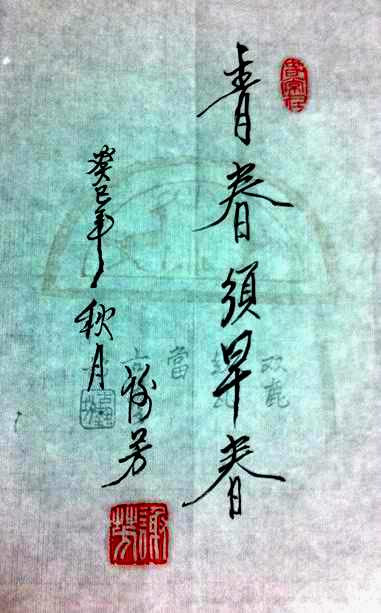 青春須早春
癸巳年秋月
谢芳
謝芳
双鹿
當